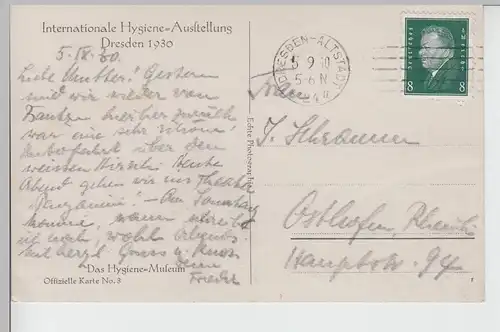 Internationale Hygiene-Ausstellung
Dresden 1930
5. IX. 30.
Liebe Mutter! Gestern
sind wir wieder von
hierher zurück
war eine sehr schöne
Autofahrt über den
weissen Hirsch. Heute
Abend gehen wir ins Theater
Paganini. – Am Sonntag
wann schreibst
wohl
Mit herzl. Gruss u. Kuss
Dein
Das Hygiene-Museum
Offizielle Karte No. 3
Echte Photographie
DRESDEN-ALTSTADT
5 9 30
5-6 N
Deutsches Reich
8 8
Frau
J. Schramm
Osthofen Rheinh.
Hauptstr. 94